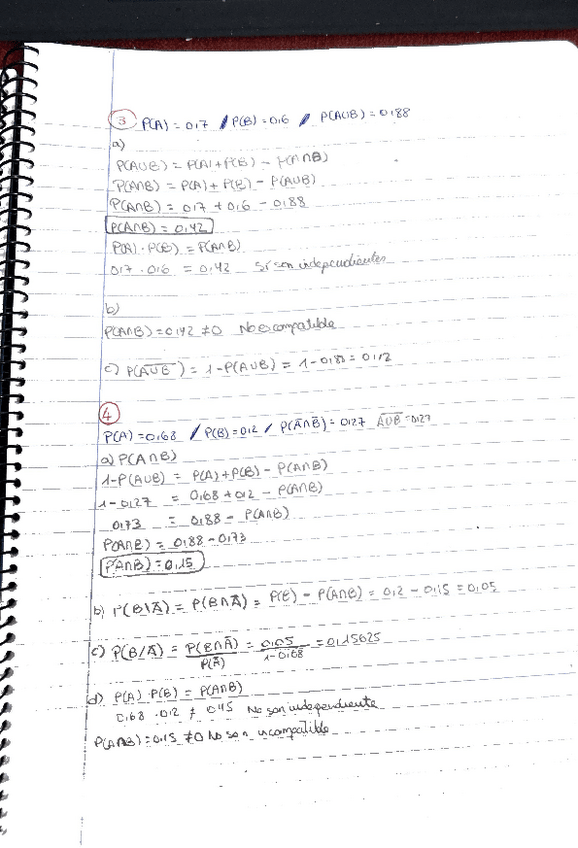 ③ P(A) = 0'7 / P(B) = 0'6 / P(A∪B) = 0'88
a)
P(A∪B) = P(A) + P(B) - P(A∩B)
P(A∩B) = P(A) + P(B) - P(A∪B)
P(A∩B) = 0'7 + 0'6 - 0'88
P(A∩B) = 0'42
P(A) · P(B) = P(A∩B)
0'7 · 0'6 = 0'42 Sí son independientes
b)
P(A∩B) = 0'42 ≠ 0 No es compatible
c) P(A̅∪̅B̅) = 1 - P(A∪B) = 1 - 0'88 = 0'12
④
P(A) = 0'68 / P(B) = 0'2 / P(A̅∩B̅) = 0'27 A̅∪̅B̅ = 0'27
a) P(A∩B)
1 - P(A∪B) = P(A) + P(B) - P(A∩B)
1 - 0'27 = 0'68 + 0'2 - P(A∩B)
0'73 = 0'88 - P(A∩B)
P(A∩B) = 0'88 - 0'73
P(A∩B) = 0'15
b) P(B\A̅) = P(B∩A̅) = P(B) - P(A∩B) = 0'2 - 0'15 = 0'05
c) P(B/A̅) = P(B∩A̅) / P(A̅) = 0'05 / 1 - 0'68 = 0'15625
d) P(A) · P(B) = P(A∩B)
0'68 · 0'2 ≠ 0'15 No son independiente
P(A∩B) = 0'15 ≠ 0 No son incompatible